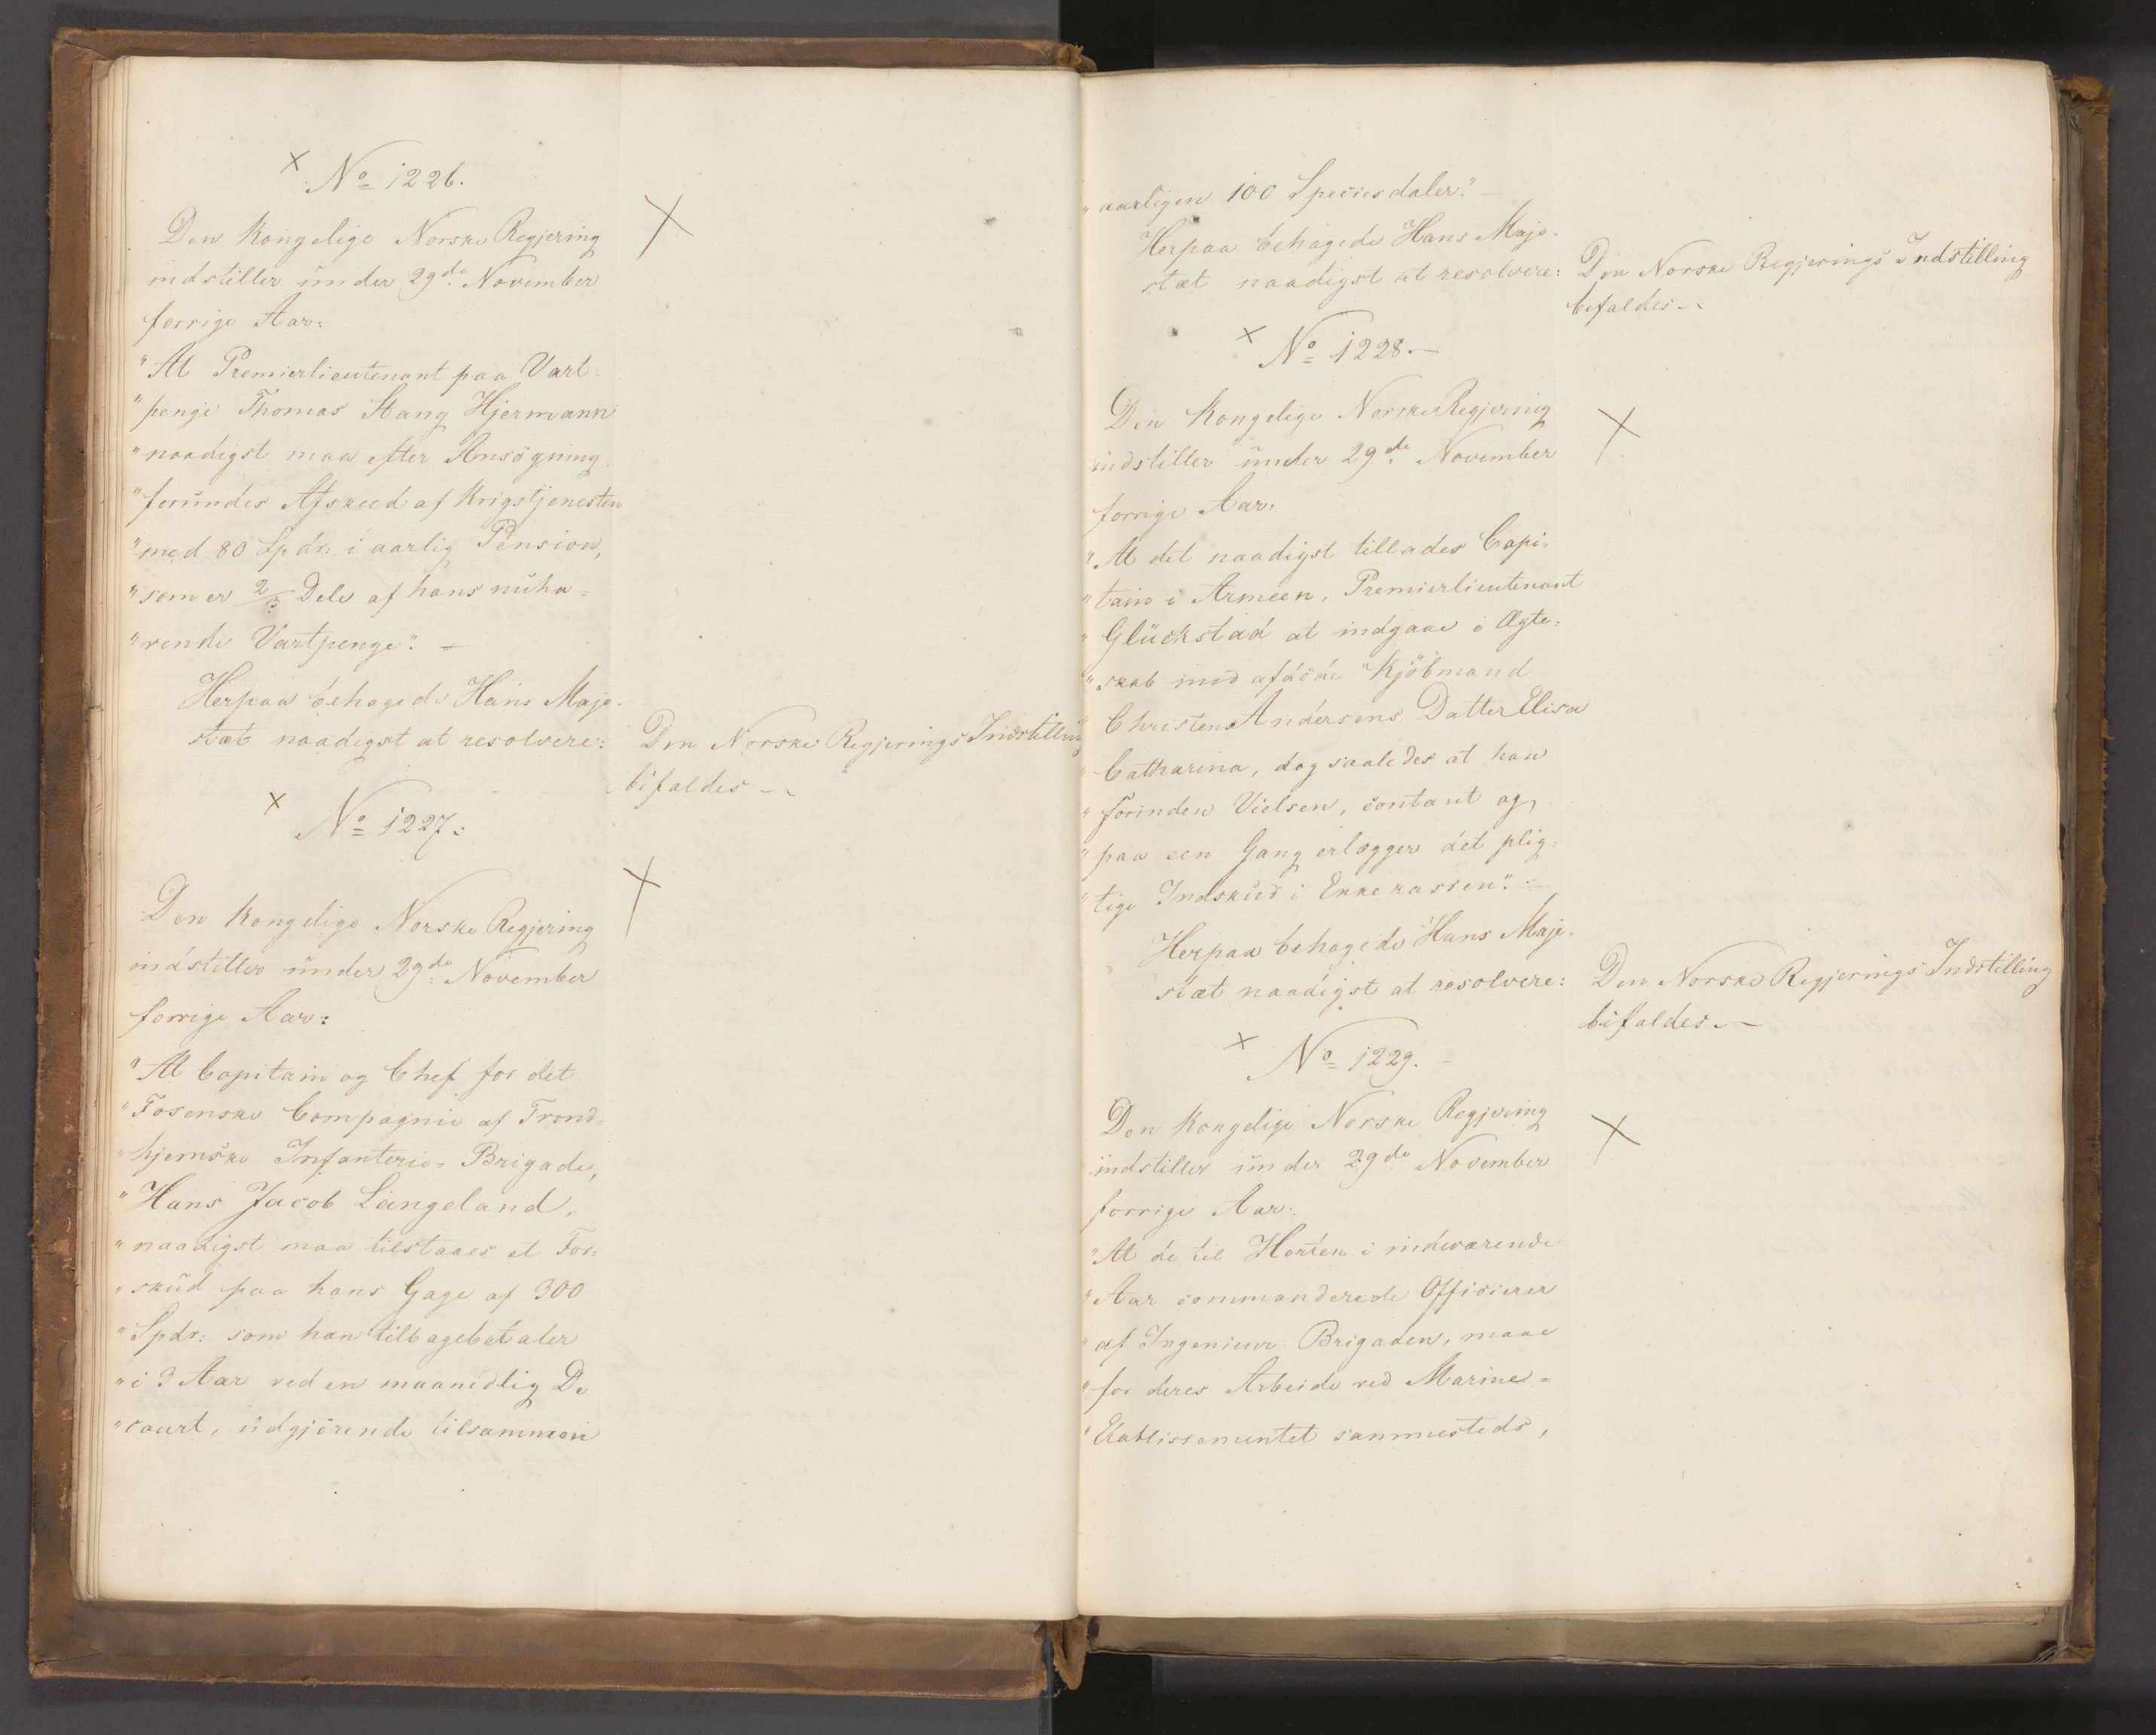 × No 1226.
Den Kongelige Norske Regjering
indstiller under 29de November
forrige Aar:
"At Premierlieutenant paa Vart-
"penge Thomas Stang Hjermann
"naadigst maa efter Ansögning
"forundes Afskeed af Krigstjenesten
"med 80 Spdr: i aarlig Pension,
"som er 2/3 Dele af hans nuha=
"vende Vartpenge". =
Herpaa behagede Hans Maje-
stæt naadigst at resolvere:
Den Norske Regjerings Indstilling
bifaldes
× No 1227.
Den Kongelige Norske Regjering
indstiller under 29de November
forrige Aar:
"At Capitain og Chef for det
"Fosenske Compagnie af Trond=
"hjemske Infanterie-Brigade,
"Hans Jacob Langeland,
"naadigst maa tilstaaes et For=
"skud paa hans Gage af 300
"Spdr: som han tilbagebetaler
"i 3 Aar ved en maanedlig De
"court, udgjörende tilsammen
"aarligen 100 Speciesdaler." —
Herpaa behagede Hans Maje-
stæt naadigst at resolvere:
Den Norske Regjerings Indstilling
bifaldes
× No 1228. —
Den Kongelige Norske Regjering
indstiller under 29de November
forrige Aar:
"At det naadigst tillades Capi-
"tain i Armeen, Premierlieutenant
"Glückstad at indgaae i Ægte-
"skab med afdöde Kjöbmand
"Christen Andersens Datter Elisa
"Catharina, dog saaledes at han
"forinden Vielsen, contant og
"paa een Gang erlægger det plig=
"tige Indskud i Enkekassen".
Herpaa behagede Hans Maje-
stæt naadigst at resolvere:
Den Norske Regjerings Indstilling
bifaldes. —
× No 1229. —
Den Kongelige Norske Regjering
indstiller under 29de November
forrige Aar:
"At de til Horten i indeværende
"Aar commanderede Officierer
"af Ingenieur-Brigaden, maae
"for deres Arbeide ved Marine=
"Etablissementet sammesteds,